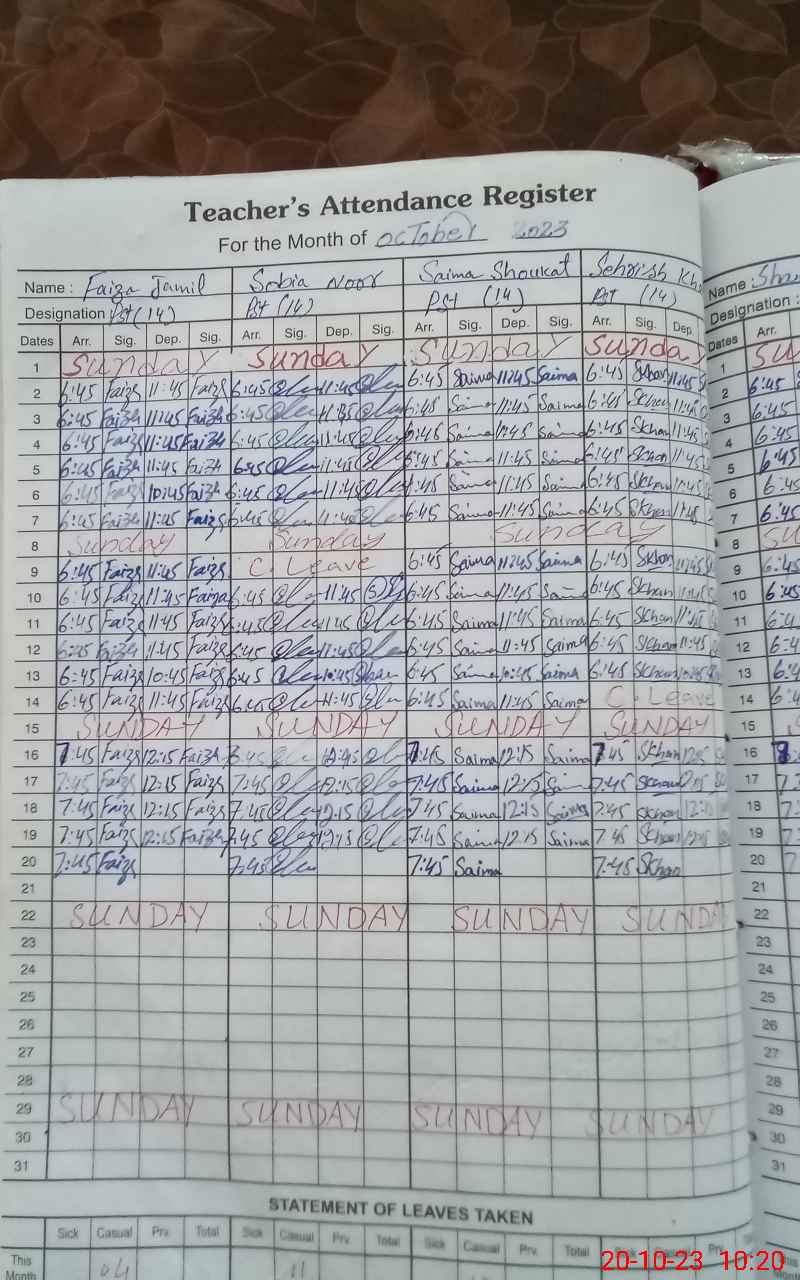 Teacher's Attendance Register
For the Month of October 2023
Name : Faiza Jamil Sobia Noor Saima Shoukat Sehrish Kh
Designation Pst (14) Pst (14) Pst (14) Pst (14)
Dates Arr. Sig. Dep. Sig. Arr. Sig. Dep. Sig. Arr. Sig. Dep. Sig. Arr. Sig. Dep.
1 Sunday Sunday Sunday Sunday
2 6:45 Faiza 11:45 Faiza 6:45 11:45 6:45 Saima 11:45 Saima 6:45 SKhan 11:45
3 6:45 Faiza 11:45 Faiza 6:45 6:45 Saima 11:45 Saima 6:45 SKhan 11:45
4 6:45 Faiza 11:45 Faiza 6:45 11:45 6:45 Saima 11:45 Saima 6:45 SKhan 11:45
5 6:45 Faiza 11:45 Faiza 6:45 11:45 6:45 Saima 11:45 Saima 6:45 SKhan 11:45
6 6:45 Faiza 10:45 Faiza 6:45 11:45 6:45 Saima 11:45 Saima 6:45 SKhan 11:45
7 6:45 Faiza 11:45 Faiza 6:45 11:45 6:45 Saima 11:45 Saima 6:45 SKhan 11:45
8 Sunday Sunday Sunday
9 6:45 Faiza 11:45 Faiza C. Leave 6:45 Saima 11:45 Saima 6:45 SKhan 11:45
10 6:45 Faiza 11:45 Faiza 6:45 11:45 6:45 Saima 11:45 Saima 6:45 SKhan 11:45
11 6:45 Faiza 11:45 Faiza 6:45 11:45 6:45 Saima 11:45 Saima 6:45 SKhan 11:45
12 6:45 Faiza 11:45 Faiza 6:45 11:45 6:45 Saima 11:45 Saima 6:45 SKhan 11:45
13 6:45 Faiza 10:45 Faiza 6:45 10:45 6:45 Saima 10:45 Saima 6:45 SKhan 10:45
14 6:45 Faiza 11:45 Faiza 6:45 11:45 6:45 Saima 11:45 Saima C. Leave
15 SUNDAY SUNDAY SUNDAY SUNDAY
16 7:45 Faiza 12:15 Faiza 7:45 7:45 Saima 12:15 Saima 7:45 SKhan 12:15
17 7:45 Faiza 12:15 Faiza 7:45 12:15 7:45 Saima 12:15 Saima 7:45 SKhan 12:15
18 7:45 Faiza 12:15 Faiza 7:45 12:15 7:45 Saima 12:15 Saima 7:45 SKhan 12:15
19 7:45 Faiza 12:15 Faiza 7:45 12:15 7:45 Saima 12:15 Saima 7:45 SKhan 12:15
20 7:45 Faiza 7:45 7:45 Saima 7:45 SKhan
21
22 SUNDAY SUNDAY SUNDAY SUNDA
23
24
25
26
27
28
29 SUNDAY SUNDAY SUNDAY SUNDAY
30
31
STATEMENT OF LEAVES TAKEN
Sick Casual Prv. Total Sick Casual Prv. Total Sick Casual Prv. Total Sick Casual Prv.
This Month 04 11
Name :
Designation :
Dates Arr.
1 SU
2 6:45
3 6:45
4 6:45
5 6:45
6 6:45
7 6:45
8 SU
9 6:45
10 6:45
11 6:4
12 6:4
13 6:4
14 6:4
15 S
16
17
18
19
20
21
22
23
24
25
26
27
28
29
30
31
20-10-23 10:20